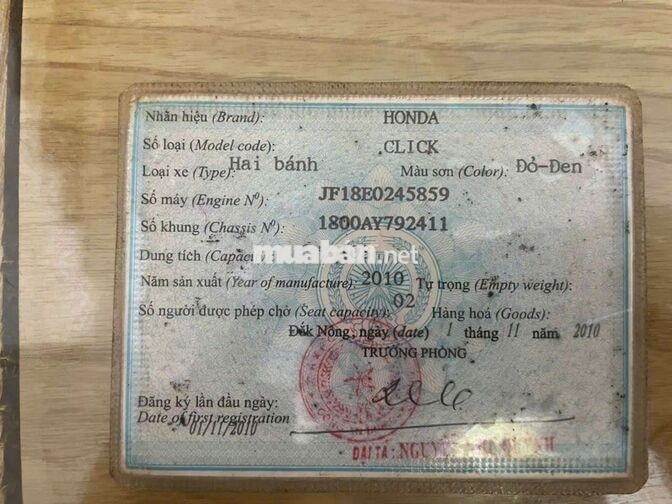 Nhãn hiệu (Brand): HONDA
Số loại (Model code): CLICK
Loại xe (Type): Hai bánh Màu sơn (Color): Đỏ-Đen
Số máy (Engine Nº): JF18E0245859
Số khung (Chassis Nº): 1800AY792411
muaban.net
Dung tích (Capac
Năm sản xuất (Year of manufacture) 2010 Tự trọng (Empty weight):
Số người được phép chở (Seat capacity): 02 Hàng hoá (Goods):
Đắk Nông, ngày (date) 1 tháng 11 năm 2010
TRƯỞNG PHÒNG
Đăng ký lần đầu ngày:
Date of first registration
01/11/2010
ĐẠI TÁ: